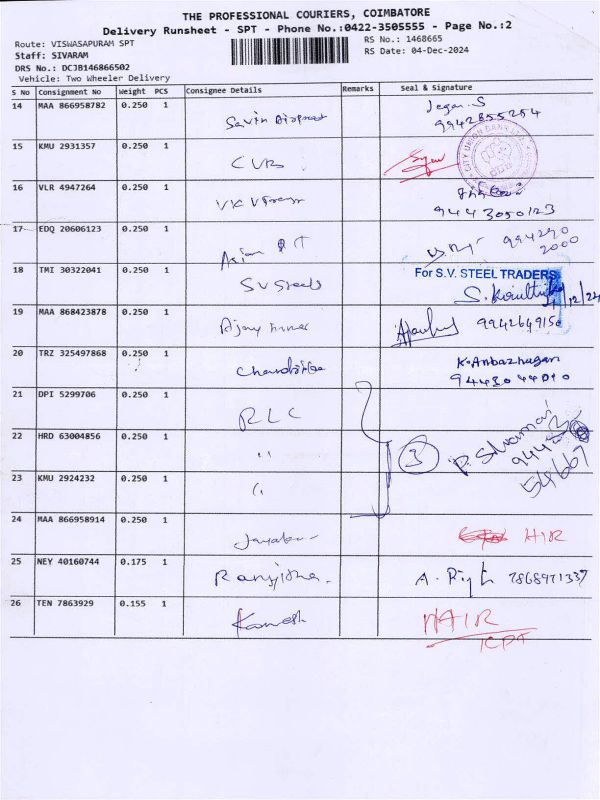 THE PROFESSIONAL COURIERS, COIMBATORE
Delivery Runsheet - SPT - Phone No.:0422-3505555 - Page No.:2
Route: VISWASAPURAM SPT
RS No.: 1468665
Staff: SIVARAM
RS Date: 04-Dec-2024
DRS No.: DCJB146866502
Vehicle: Two Wheeler Delivery
S No Consignment No Weight PCS Consignee Details Remarks Seal & Signature
14 MAA 866958782 0.250 1 Jegan.S
9942855254
15 KMU 2931357 0.250 1 CUB
CITY UNION BANK LTD.
16 VLR 4947264 0.250 1
9443050123
17 EDQ 20606123 0.250 1 Asian 994290
2000
18 TMI 30322041 0.250 1 S V Steels For S.V. STEEL TRADERS
/12/24
19 MAA 868423878 0.250 1 Ajay 9942649150
20 TRZ 325497868 0.250 1 K. Anbazhagan
9443044010
21 DPI 5299706 0.250 1 RLC
22 HRD 63004856 0.250 1 " 3
23 KMU 2924232 0.250 1 "
54667
24 MAA 866958914 0.250 1 HIR
25 NEY 40160744 0.175 1 7868971337
26 TEN 7863929 0.155 1 Kamesh HAIR